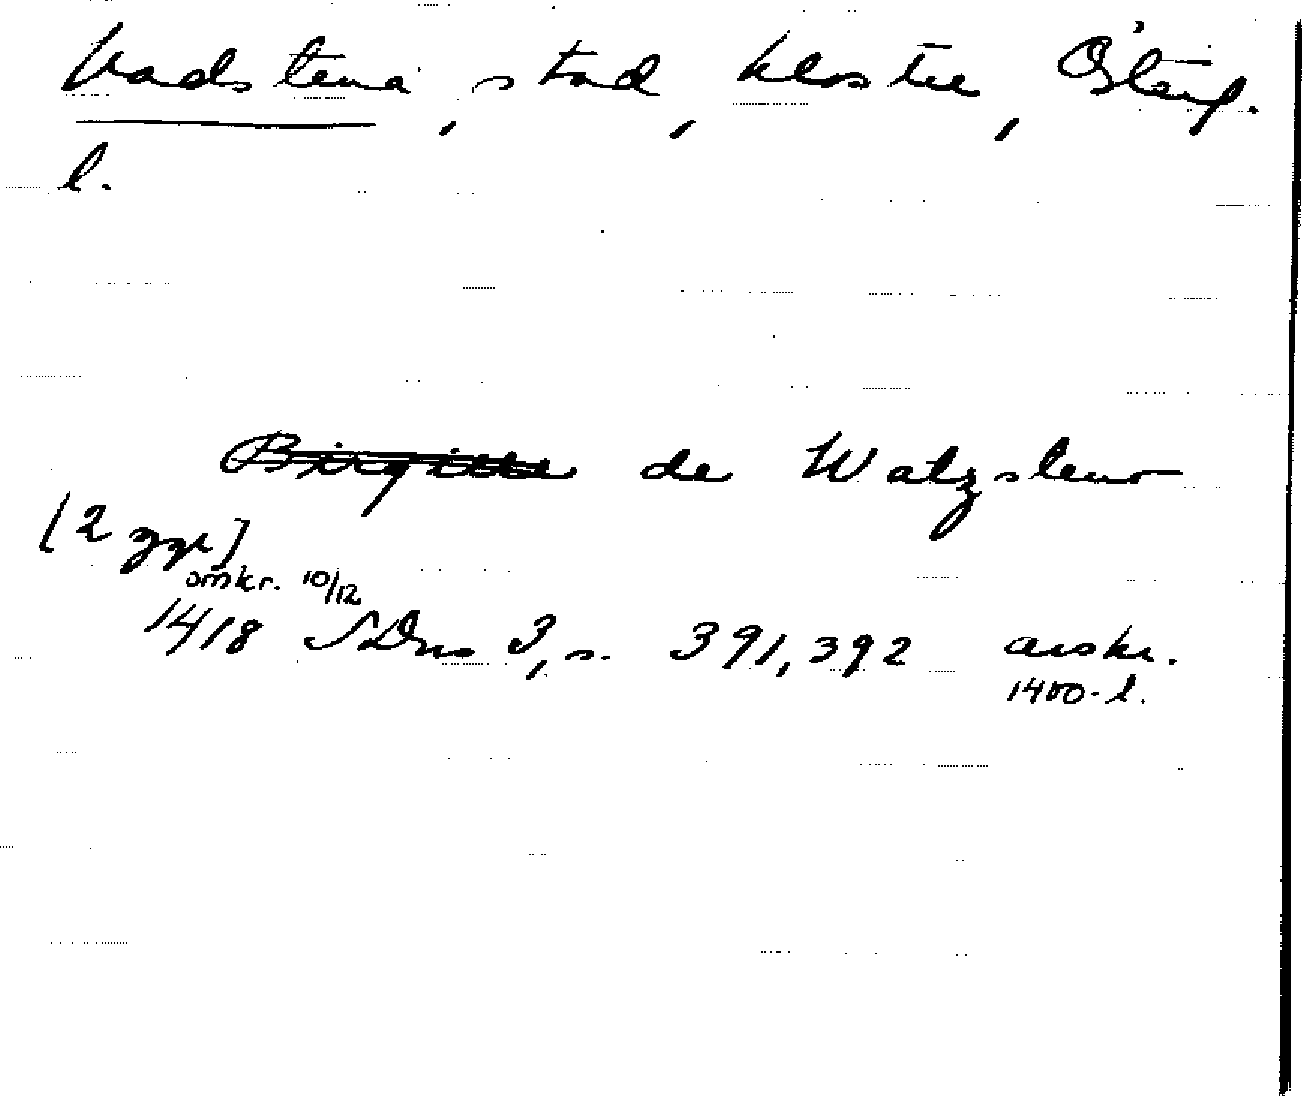 Vadstena, stad, kloster, Österg.
l.
Birgitte de Watzsteno
[2 ggr]
omkr. 10/12
1418 SDns 3, s. 391, 392 avskr.
1400-l.